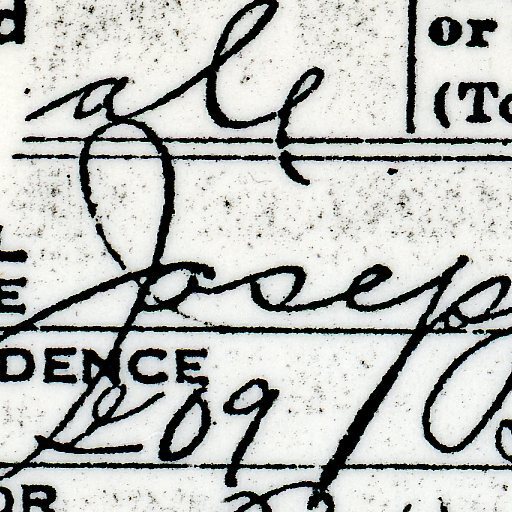 d
ale
or
(To
L
E
Joseph
DENCE
209
OR